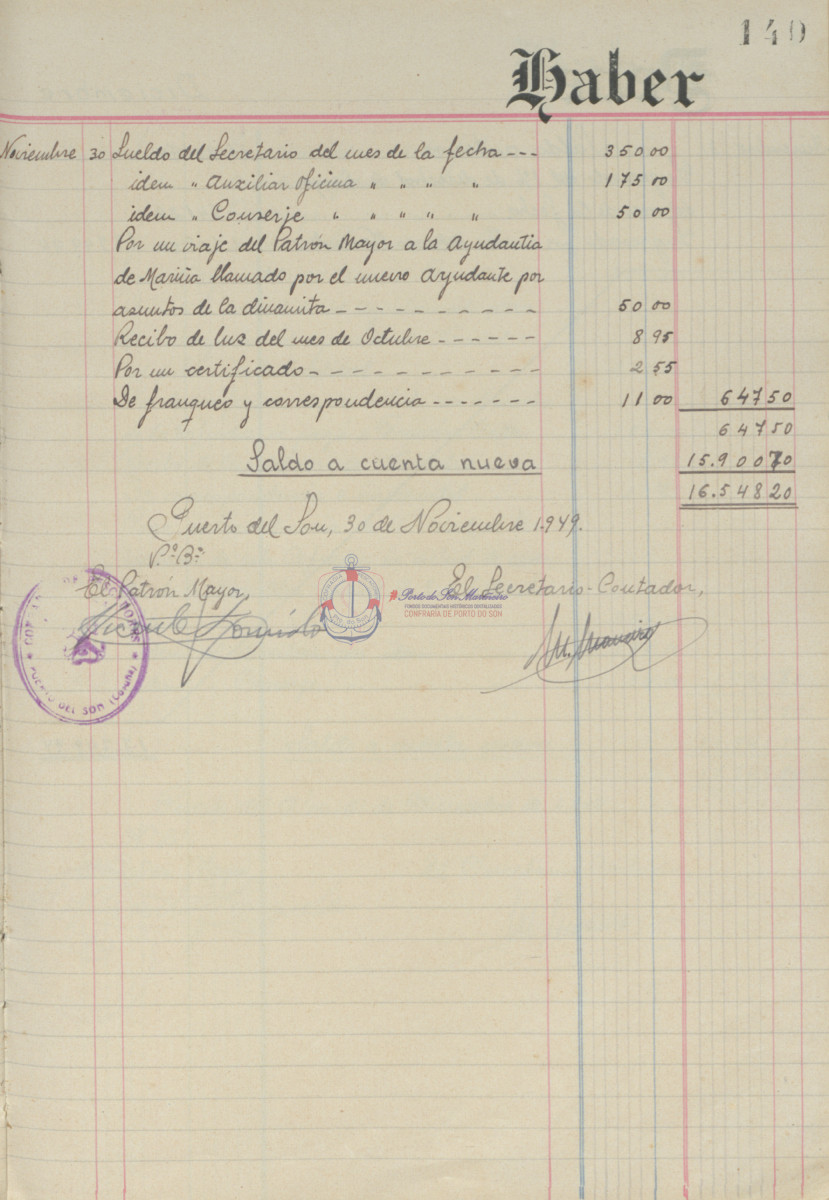 140
Haber
Noviembre 30 Sueldo del Secretario del mes de la fecha --- 350 00
idem " Auxiliar oficina " " " " 175 00
idem " Conserje " " " " " 50 00
Por un viaje del Patrón Mayor a la Ayudantia
de Marina llamado por el nuevo Ayudante por
asuntos de la dinamita - - - - - - - - - - 50 00
Recibo de luz del mes de Octubre - - - - - - 8 95
Por un certificado - - - - - - - - - - - 2 55
De franqueo y correspondencia - - - - - - - 11 00 647 50
647 50
Saldo a cuenta nueva 15.900 70
16.548 20
Puerto del Son, 30 de Noviembre 1.949.
Vº Bº
El Patrón Mayor, El Secretario-Contador,
Porto do Son Mariñeiro
FONDOS DOCUMENTAIS HISTÓRICOS DIXITALIZADOS
CONFRARÍA DE PORTO DO SON
PUERTO DEL SON (Coruña)